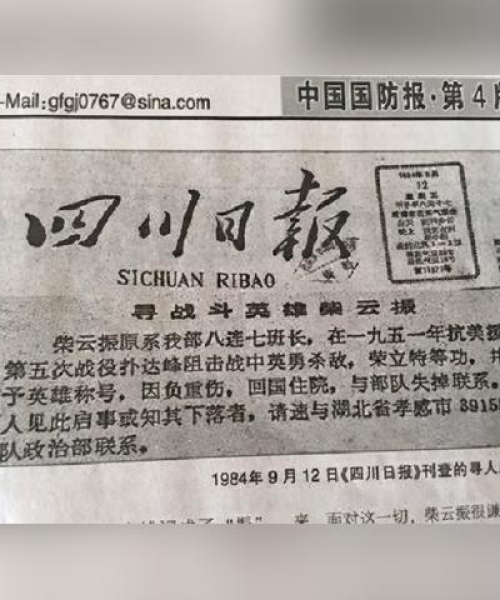 -Mail:gfgj0767@sina.com
中国国防报·第4版
四川日报
SICHUAN RIBAO
1984年9月
12
星期三
寻战斗英雄柴云振
柴云振原系我部八连七班长，在一九五一年抗美援
第五次战役扑达峰阻击战中英勇杀敌，荣立特等功，
予英雄称号，因负重伤，回国住院，与部队失掉联系。
人见此启事或知其下落者，请速与湖北省孝感市3915
队政治部联系。
1984年9月12日《四川日报》刊登的寻人
来，面对这一切，柴云振很谦